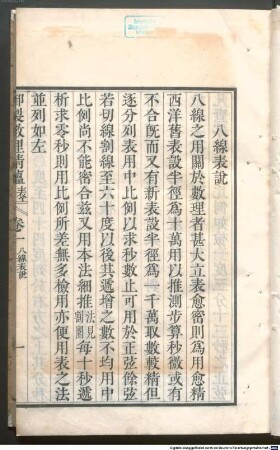 八線表說
八線之用關於數理者甚大立表愈密則為用愈精
西洋舊表設半徑為十萬用以推測步算秒微或有
不合旣而又有新表設半徑為一千萬取數較精但
逐分列表用中比例以求秒數止可用於正弦餘弦
若切線割線至六十度以後其遞增之數不均用中
比例尚不能密合茲又用本法細推法見割圜每十秒遞
析求零秒則用比例所差無多檢用亦便用表之法
並列如左
御製數理精蘊表 卷一 八線表說 一